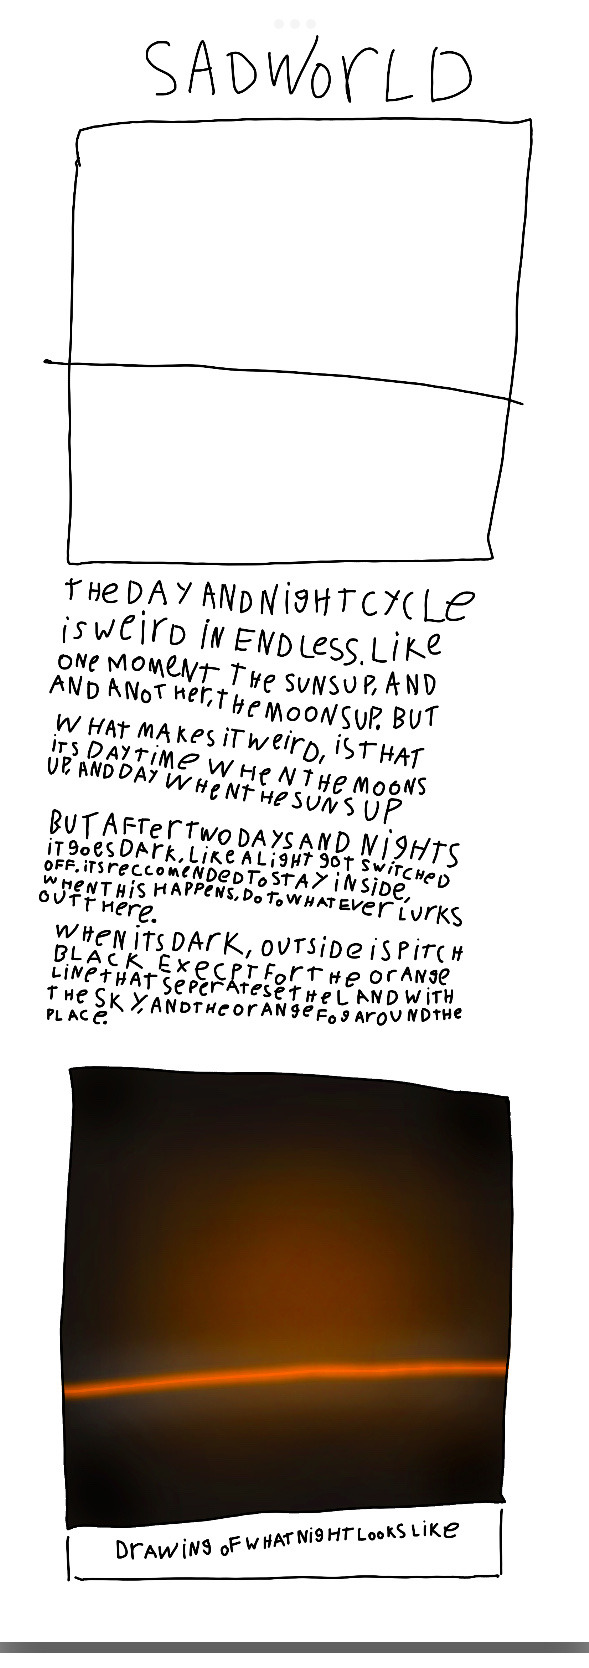 SADWorLD
THeDAY ANDNigHTCYCLe
isweirD IN ENDLess. Like
ONE MOMeNT THe SUNSUP, AND
AND ANoTHer, THeMOONSUP. BUT
WHAT MAKes iTweirD, isTHAT
iTs DAYTiMe WHeNTHeMOONs
UP, ANDDAY WHeNTHeSUNSUP
BUTAFTerTWODAYSAND NigHTS
iTgoesDARK, LikeALigHT goT SWiTCHeD
OFF. iTsreccoMeNDeDToSTAY iNSiDe,
WHeNTHiS HAPPeNS, DoToWHATEVer LurKS
OUTTHere.
WHeNiTsDArK, OUTSiDeiSPiTCH
BLACK EXeCPTForTHe OrANge
LiNeTHATSePerATeseTHeLANDWiTH
THe SKY, ANDTHeOrANgeFogAroUNDTHe
PLACe.
DrAWiNg oFWHATNigHTLooksLike